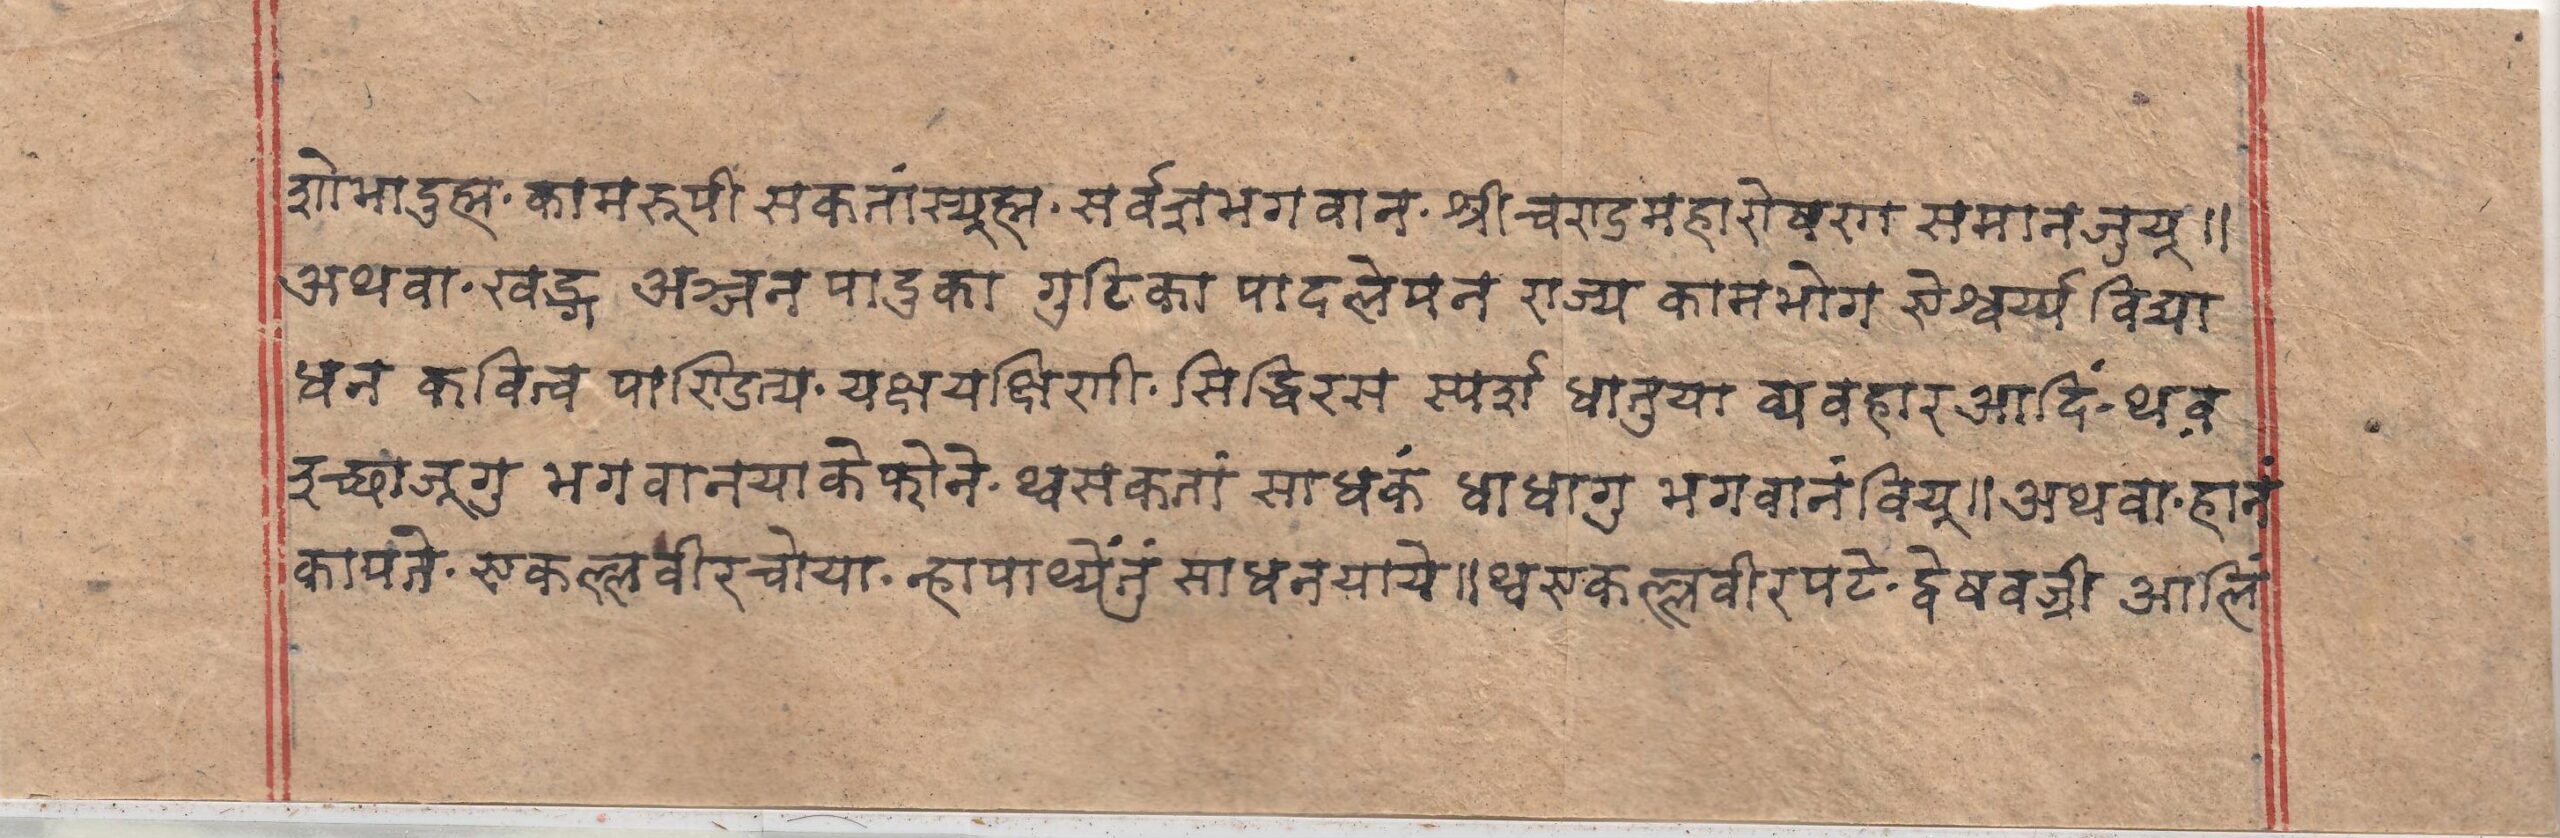 शोभादुह्म· कामरूपी सकतांस्यूह्म· सर्वज्ञभगवान· श्रीचण्डमहारोषण समानजुयू॥
अथवा· खड्ग अञ्जन पादुका गुटिका पादलेपन राज्य कामभोग ऐश्वर्य्य विद्या
धन कवित्व पाण्डित्य· यक्षयक्षिणी· सिद्धिरस स्पर्श धातुया व्यवहारआदिं· थव
इच्छाजूगु भगवानयाके फोने· थ्वसकतां साधकं धाधागु भगवानंवियू॥ अथवा· हानं
कापते· एकल्लवीरचोया· न्हापाथ्येंतुं साधनयाये॥ थ्वएकल्लवीरपटे· द्वेषवज्री आलिं